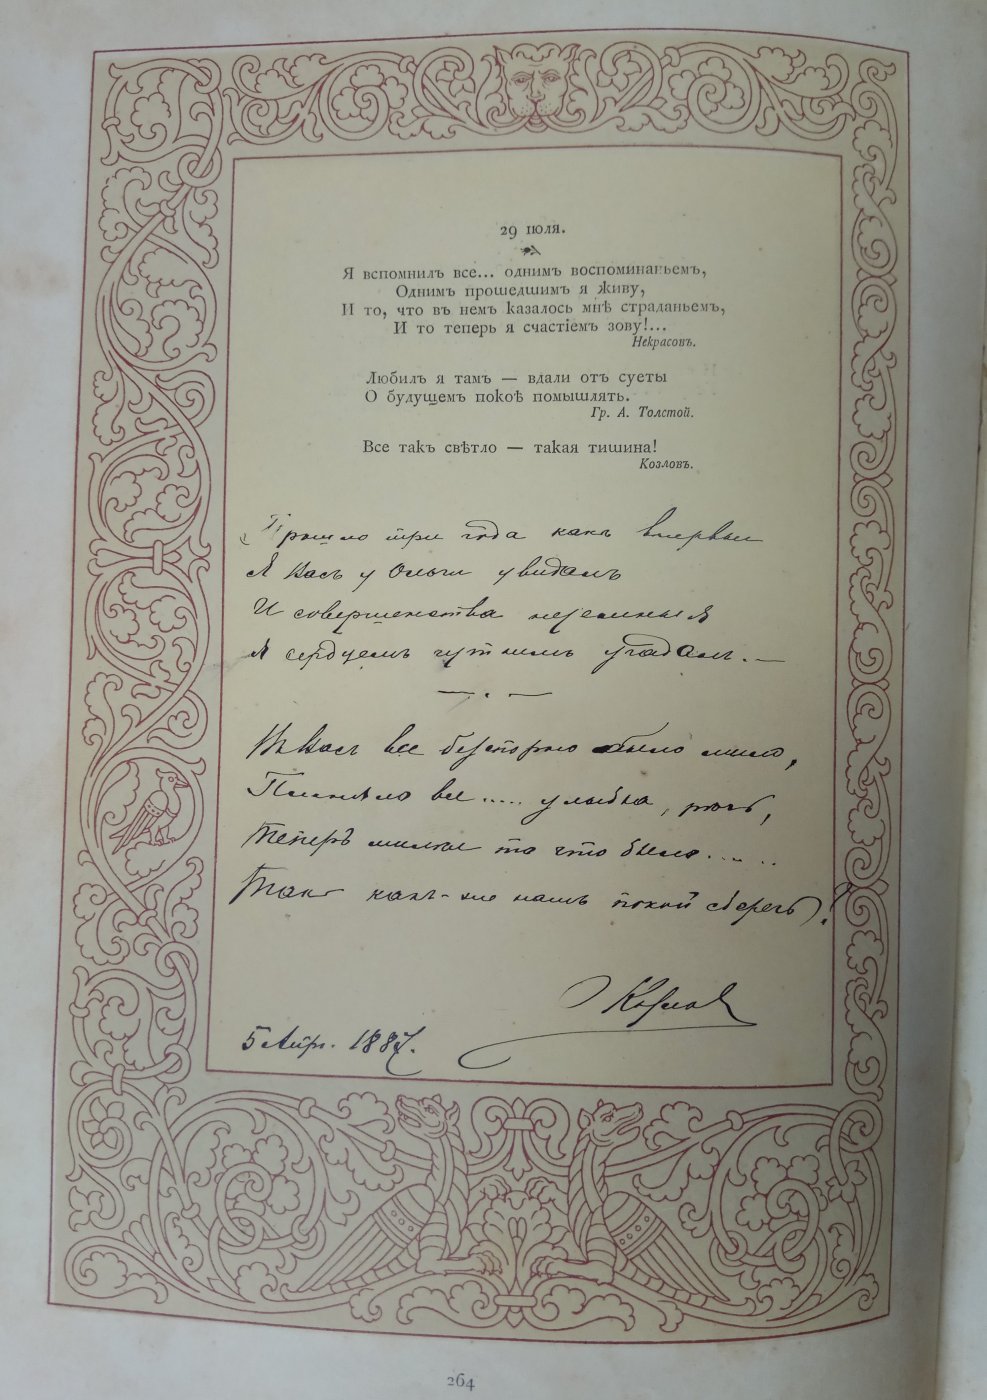 29 июля.
Я вспомнилъ все... однимъ воспоминаньемъ,
Однимъ прошедшимъ я живу,
И то, что въ немъ казалось мнѣ страданьемъ,
И то теперь я счастіемъ зову!...
Некрасовъ.
Любилъ я тамъ — вдали отъ суеты
О будущемъ покоѣ помышлять.
Гр. А. Толстой.
Все такъ свѣтло — такая тишина!
Козловъ.
Прошло три года какъ впервые
Я Васъ у Ольги увидалъ
И совершенства неземныя
Я сердцемъ чуткимъ угадалъ. —
— . —
Въ Васъ все безспорно было мило,
Плѣняло все..... улыбка, рѣчь,
Теперь милы то что было......
Такъ какъ-же намъ покой сберечь?
5 Апр. 1887.
264